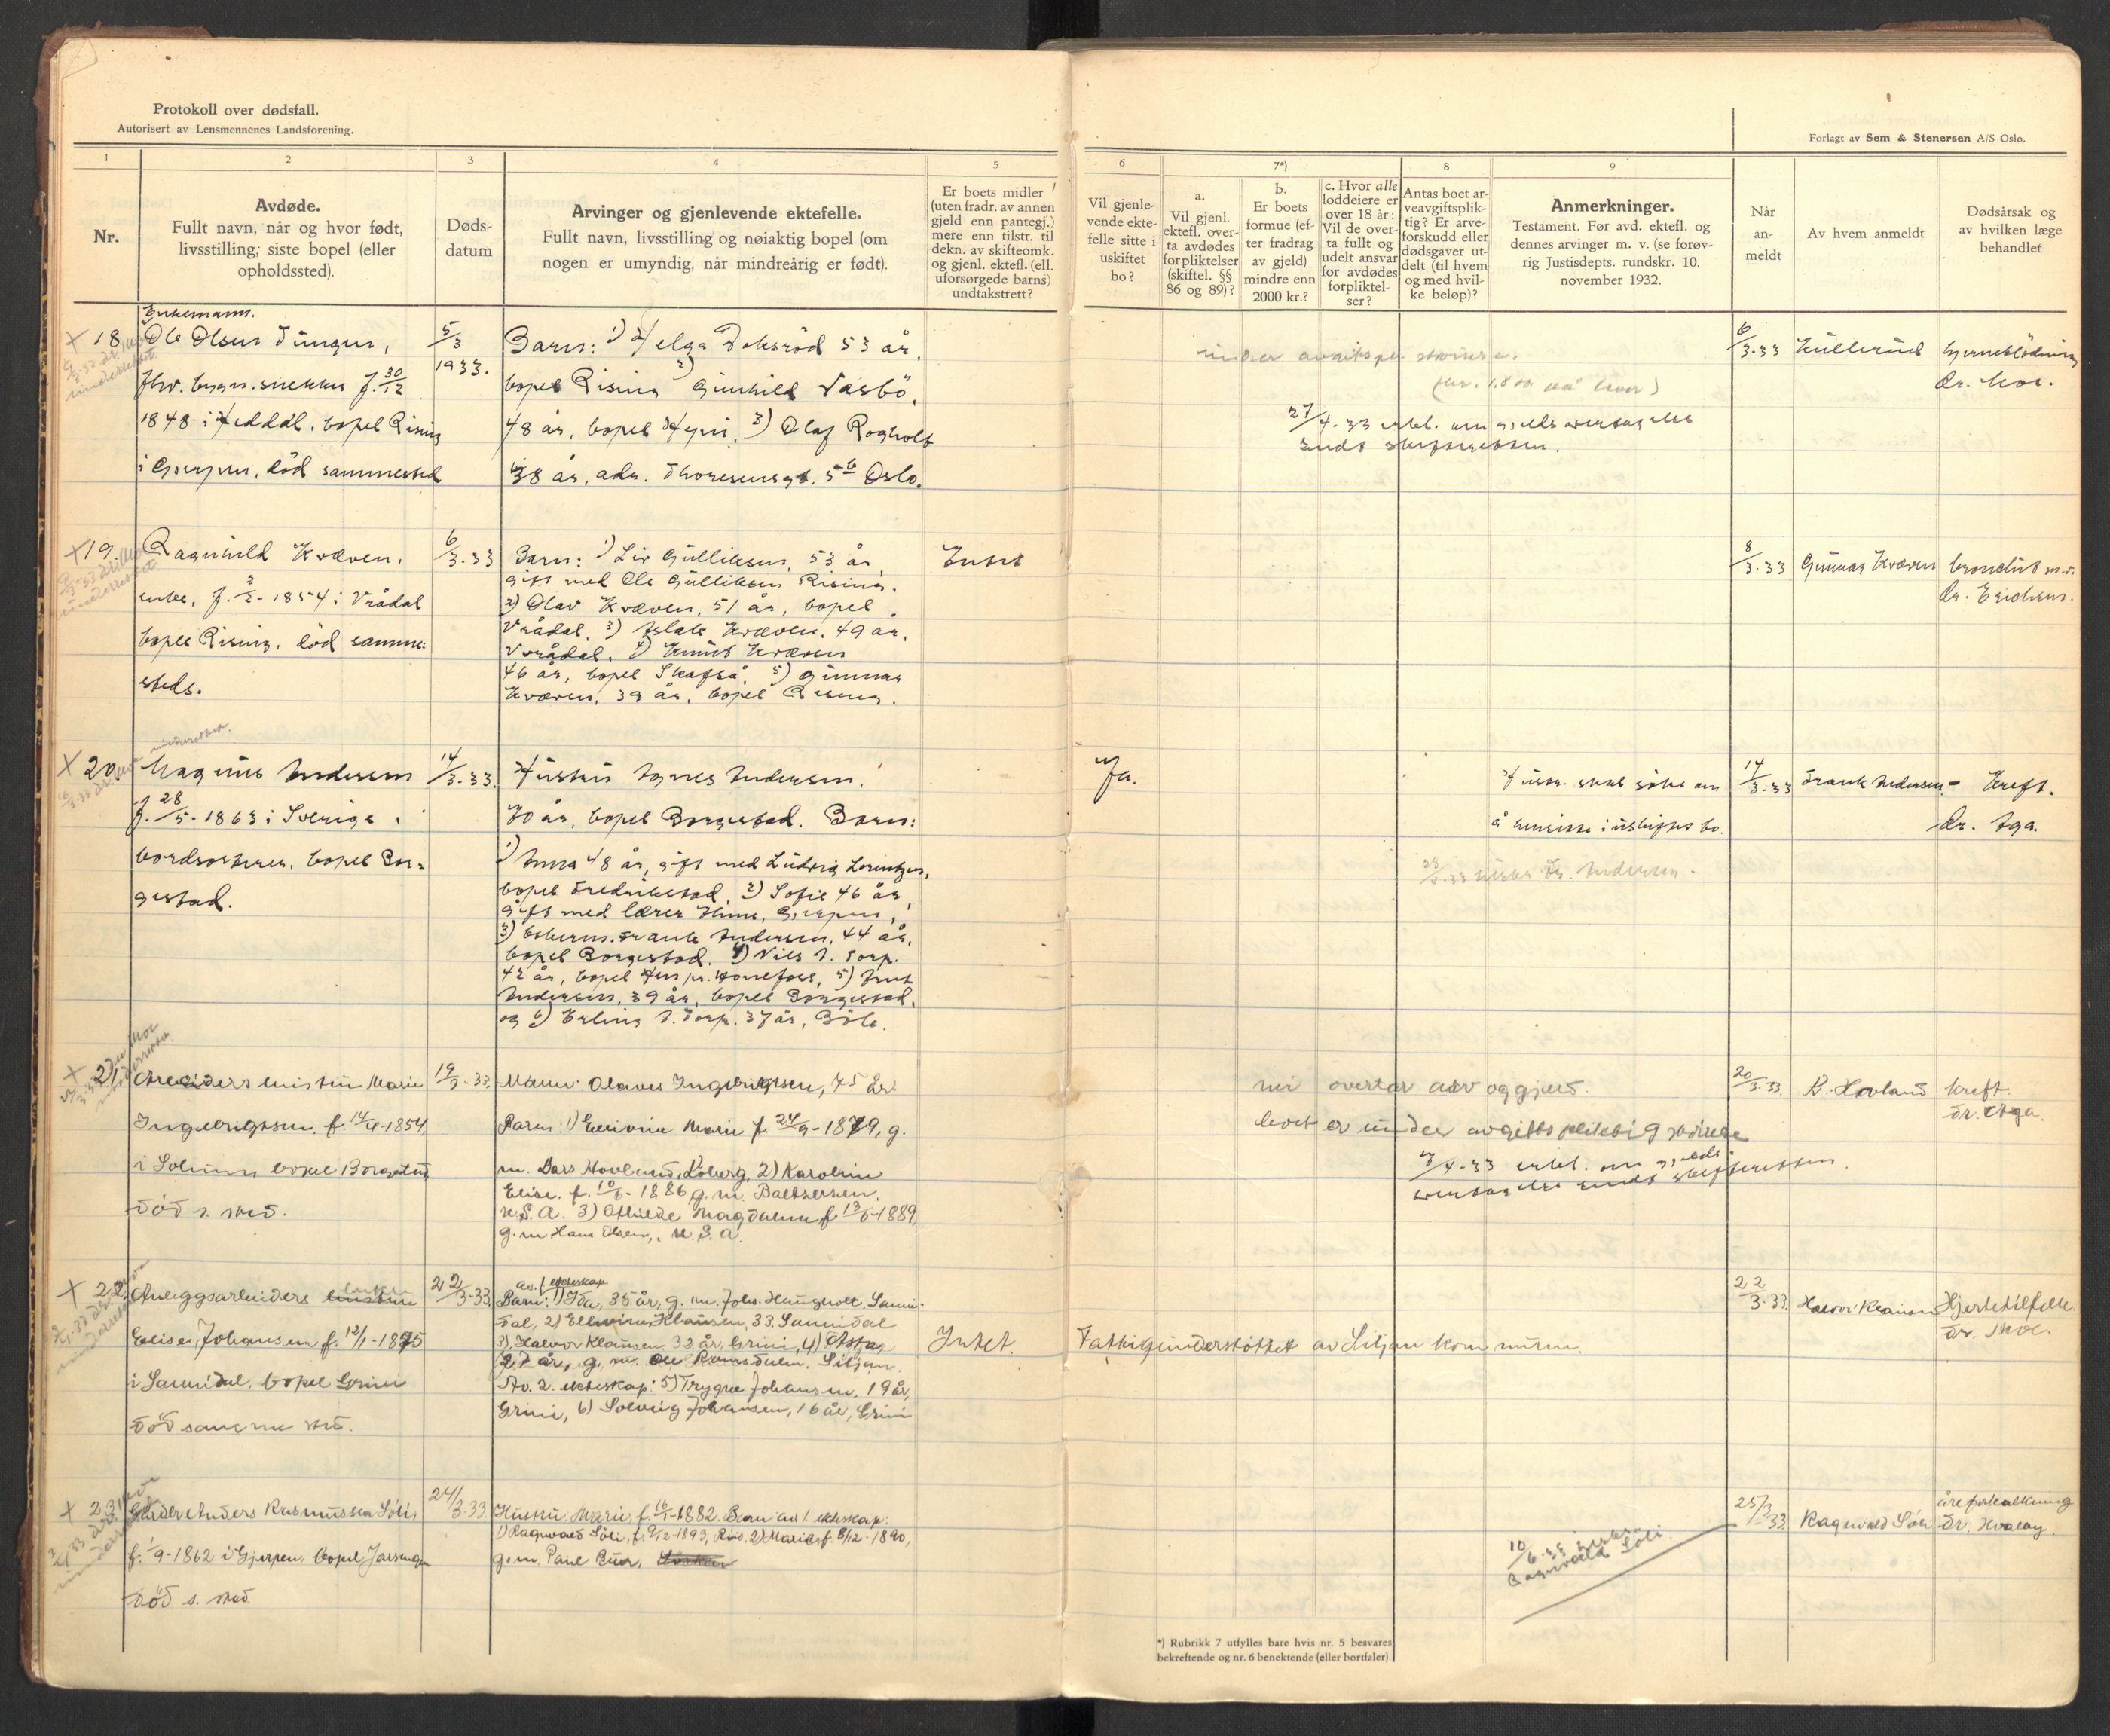 Protokoll over dødsfall.
Autorisert av Lensmennenes Landsforening.
Forlagt av Sem & Stenersen A/S Oslo.
1 2 3 4 5 6 7*) 8 9
Nr.
Avdøde.
Fullt navn, når og hvor født,
livsstilling, siste bopel (eller
opholdssted).
Døds-
datum
Arvinger og gjenlevende ektefelle.
Fullt navn, livsstilling og nøiaktig bopel (om
nogen er umyndig, når mindreårig er født).
Er boets midler
(uten fradr. av annen
gjeld enn pantegj.)
mere enn tilstr. til
dekn. av skifteomk.
og gjenl. ektefl. (ell.
uforsørgede barns)
undtakstrett?
Vil gjenle-
vende ekte-
felle sitte i
uskiftet
bo?
a.
Vil gjenl.
ektefl. over-
ta avdødes
forpliktelser
(skiftel. §§
86 og 89)?
b.
Er boets
formue (ef-
ter fradrag
av gjeld)
mindre enn
2000 kr.?
c. Hvor alle
loddeiere er
over 18 år:
Vil de over-
ta fullt og
udelt ansvar
for avdødes
forpliktel-
ser?
Antas boet ar-
veavgiftsplik-
tig? Er arve-
forskudd eller
dødsgaver ut-
delt (til hvem
og med hvil-
ke beløp)?
Anmerkninger.
Testament. Før avd. ektefl. og
dennes arvinger m. v. (se forøv-
rig Justisdepts. rundskr. 10.
november 1932.
Når
an-
meldt
Av hvem anmeldt
Dødsårsak og
av hvilken læge
behandlet
Enkemann.
× 18. Ole Olsen Tinger,
fhv. bygn.snekker f. 30/12
1848 i Heddal, bopel Rising
i Gjerpen, død sammested
5/3
1933.
Barn: 1) Helga Doksrød 53 år,
bopel Rising 2) Gunhild Vasbö,
48 år, bopel 3) Olaf Rogholt
38 år, adr. Thoresensgt. 5b Oslo.
27/4-33 erkl. om gjelds overtagelse
sendt skifteretten.
6/3-33 Kullerud hjerneblödning
dr. Moe.
× 19. Ragnhild Kvæven,
enke, f. 2/2-1854 i Vrådal
bopel Rising, död samme-
steds.
6/3-33
Barn: 1) Liv Gulliksen, 53 år,
gift med Ole Gulliksen Rising.
2) Olav Kvæven, 51 år, bopel
Vrådal, 3) Aslak Kvæven, 49 år,
Vrådal. 4) Knut Kvæven
46 år, bopel Skafså, 5) Gunnar
Kvæven, 39 år, bopel Rising.
Intet
8/3-33 Gunnar Kvæven bronchit m.v.
dr. Erichsen.
× 20. Magnus Andersen
f. 28/5-1863 i Sverige,
bordsorterer, bopel Bor-
gestad.
14/3-33.
Hustru Agnes Andersen,
70 år, bopel Borgestad. Barn:
1) Anna 48 år, gift med Ludvig Lorentzen,
bopel Fredrikstad, 2) Sofie 46 år,
gift med lærer Gjerpen,
3) Frank Andersen, 44 år,
bopel Borgestad, 4) Nils A. Torp.
42 år, bopel Hen pr. Hönefoss, 5)
Andersen, 39 år, bopel Borgestad,
og 6) Erling A. Torp. 37 år, Böle.
Ja.
Hustr. skal söke om
å hensitte i uskiftet bo.
14/3-33 Frank Andersen - Kreft.
dr. Aga.
× 21. Arbeiders hustru Marie
Ingebrigtsen. f. 14/4-1854
i Solum bopel Borgestad
död s. sted.
19/3-33.
Mann: Olaves Ingebrigtsen, 75 år.
Barn: 1) Marie f. 24/9-1879, g.
m. Lars Hovland, 2) Karoline
Elise. f. 10/6-1886, g. m. Baltsersen,
U.S.A. 3) Othilde Magdalene f. 13/6-1889,
g. m Hans Olsen, U.S.A.
overtar arv og gjeld.
boet er under avgiftspliktig störrelse
erkl. om gjelds
overtagelse sendt skifteretten.
20/3-33. Hovland kreft.
Dr. Aga.
× 22. Anleggsarbeiders enke
Elise Johansen f. 12/1-1875
i Sannidal, bopel Grini
död samme sted.
22/3-33
av 1. ekteskap
Barn: 1) Ida, 35 år, g. m. Johs. Haugholt, Sanni-
dal, 2) Klausen, 33. Sannidal
3) Halvor Klausen 32 år, Grini, 4) Asta
27 år, g. m. Ole Romsdalen. Siljan.
Av 2. ekteskap: 5) Trygve Johansen, 19 år,
Grini, 6) Solveig Johansen, 16 år, Grini
Intet. Fattigunderstöttet av Siljan kommune.
22/3-33. Halvor Klausen Hjertetilfelle
Dr. Moe.
× 23. Gårdbr. Anders Rasmussen Söli,
f. 1/9-1862 i Gjerpen, bopel
död s. sted
24/3-33.
Hustru Marie, f. 16/1-1882. Barn av 1. ekteskap:
1) Ragnvald Söli, f. 9/12-1893, Riis. 2) Marie f. 8/12-1890,
g. m. Paul Bua.
10/6-33
Ragnvald Söli
25/3-33 Ragnvald Söli åreforkalkning
Dr. Hvalby.
*) Rubrikk 7 utfylles bare hvis nr. 5 besvares
bekreftende og nr. 6 benektende (eller bortfaller).